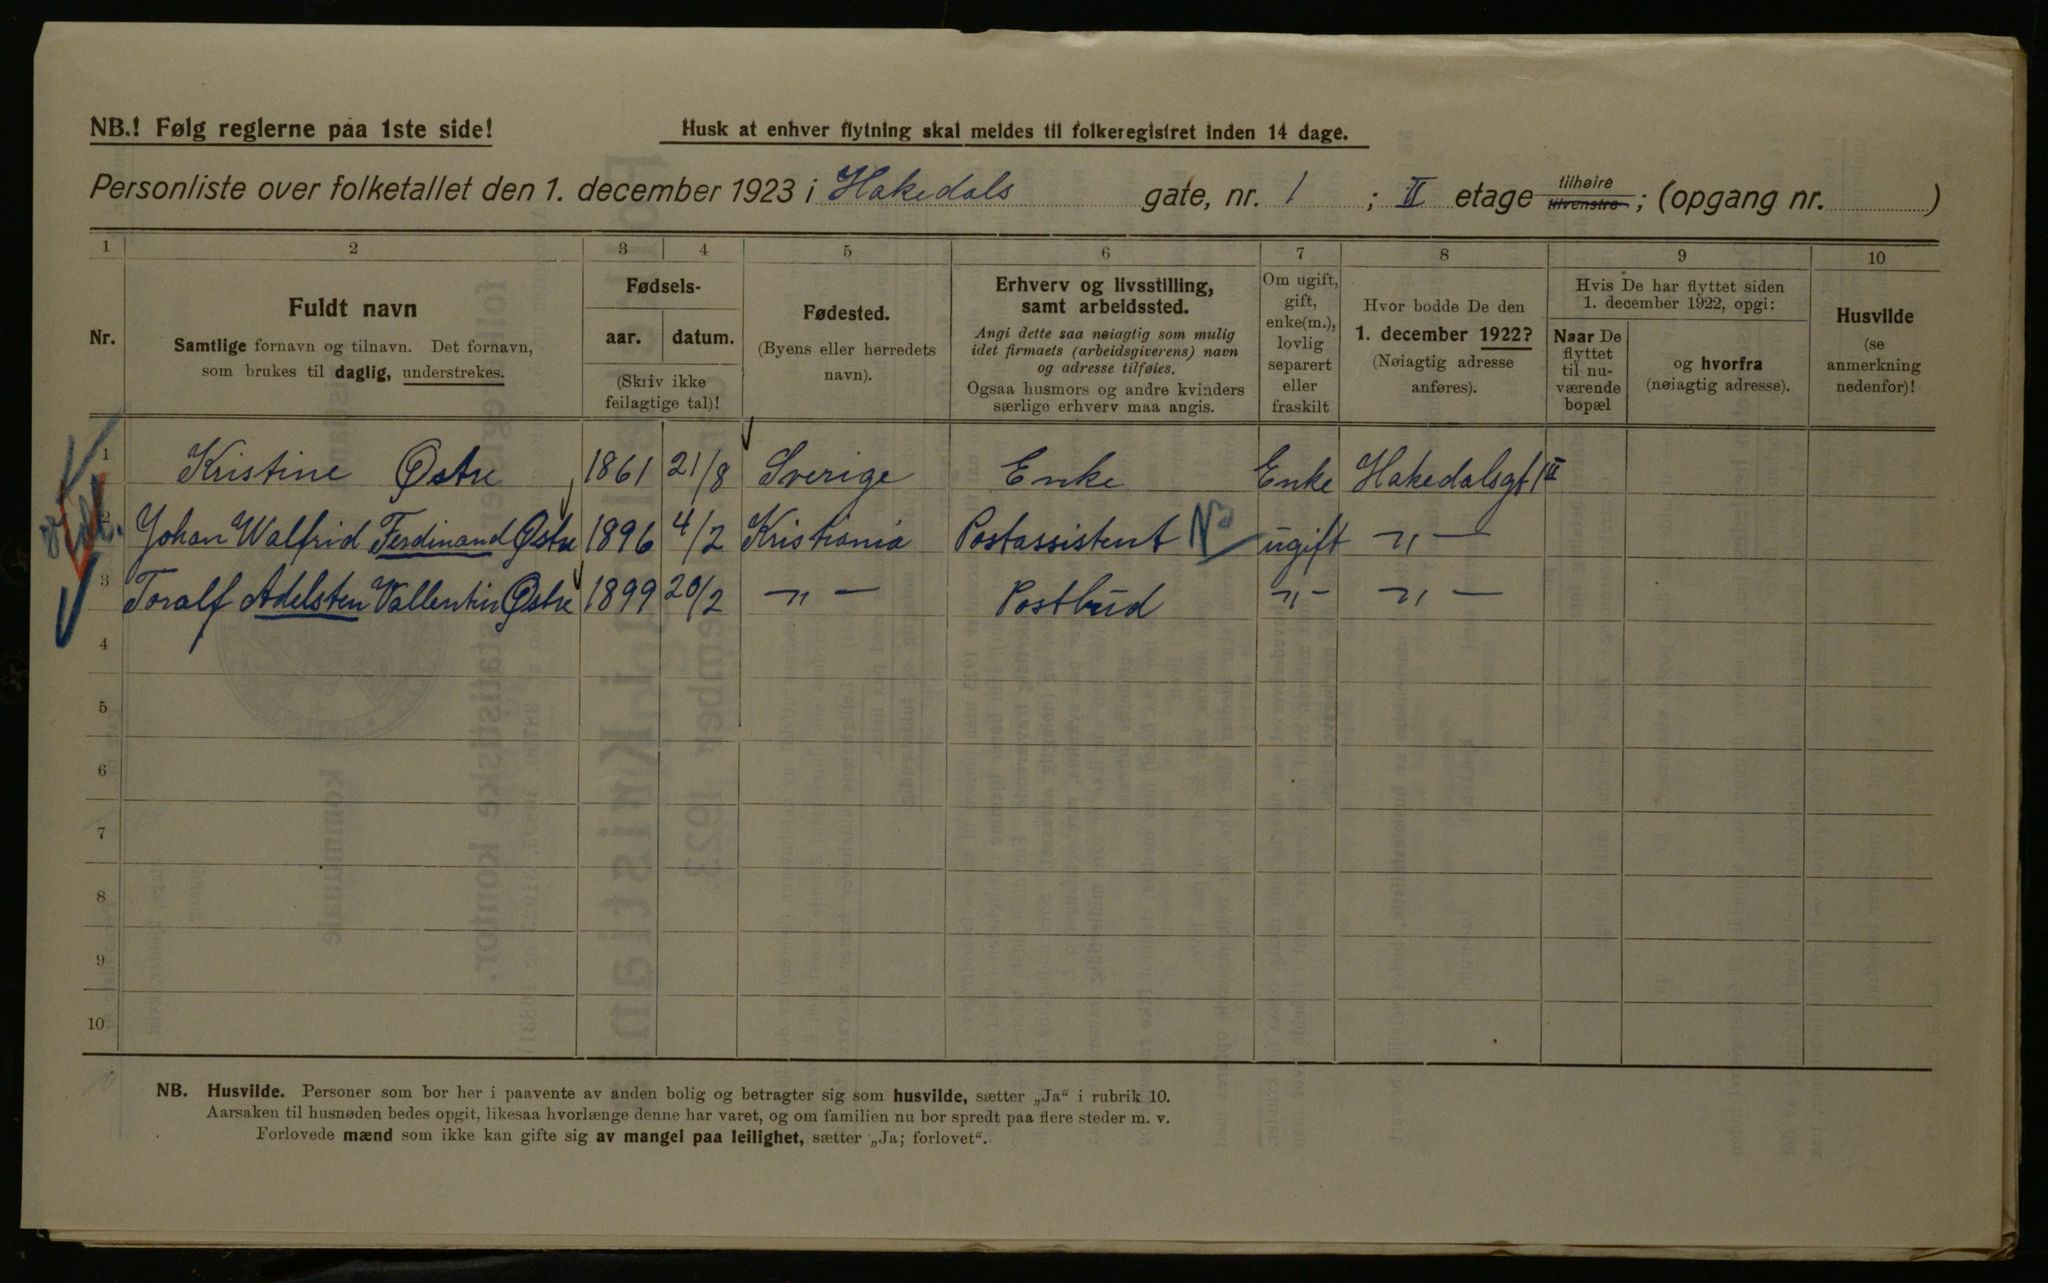 NB.! Følg reglerne paa 1ste side!
Husk at enhver flytning skal meldes til folkeregistret inden 14 dage.
Personliste over folketallet den 1. december 1923 i Hakedals gate, nr. 1 ; II etage tilhøire tilvenstre; (opgang nr. )
1 2 3 4 5 6 7 8 9 10
Nr.
Fuldt navn
Samtlige fornavn og tilnavn. Det fornavn,
som brukes til daglig, understrekes.
Fødsels-
aar. datum.
(Skriv ikke
feilagtige tal)!
Fødested.
(Byens eller herredets
navn).
Erhverv og livsstilling,
samt arbeidssted.
Angi dette saa nøiagtig som mulig
idet firmaets (arbeidsgiverens) navn
og adresse tilføies.
Ogsaa husmors og andre kvinders
særlige erhverv maa angis.
Om ugift,
gift,
enke(m.),
lovlig
separert
eller
fraskilt
Hvor bodde De den
1. december 1922?
(Nøiagtig adresse
anføres).
Hvis De har flyttet siden
1. december 1922, opgi:
Naar De
flyttet
til nu-
værende
bopæl
og hvorfra
(nøiagtig adresse).
Husvilde
(se
anmerkning
nedenfor)!
1 Kristine Østre 1861 21/8 Sverige Enke Enke Hakedalsgt 1 II
2 Johan Walfrid Ferdinand Østre 1896 4/2 Kristiania Postassistent ugift —„—
3 Toralf Adelsten Vallentin Østre 1899 20/2 —„— Postbud —„— —„—
4
5
6
7
8
9
10
NB. Husvilde. Personer som bor her i paavente av anden bolig og betragter sig som husvilde, sætter „Ja“ i rubrik 10.
Aarsaken til husnøden bedes opgit, likesaa hvorlænge denne har varet, og om familien nu bor spredt paa flere steder m. v.
Forlovede mænd som ikke kan gifte sig av mangel paa leilighet, sætter „Ja; forlovet“.